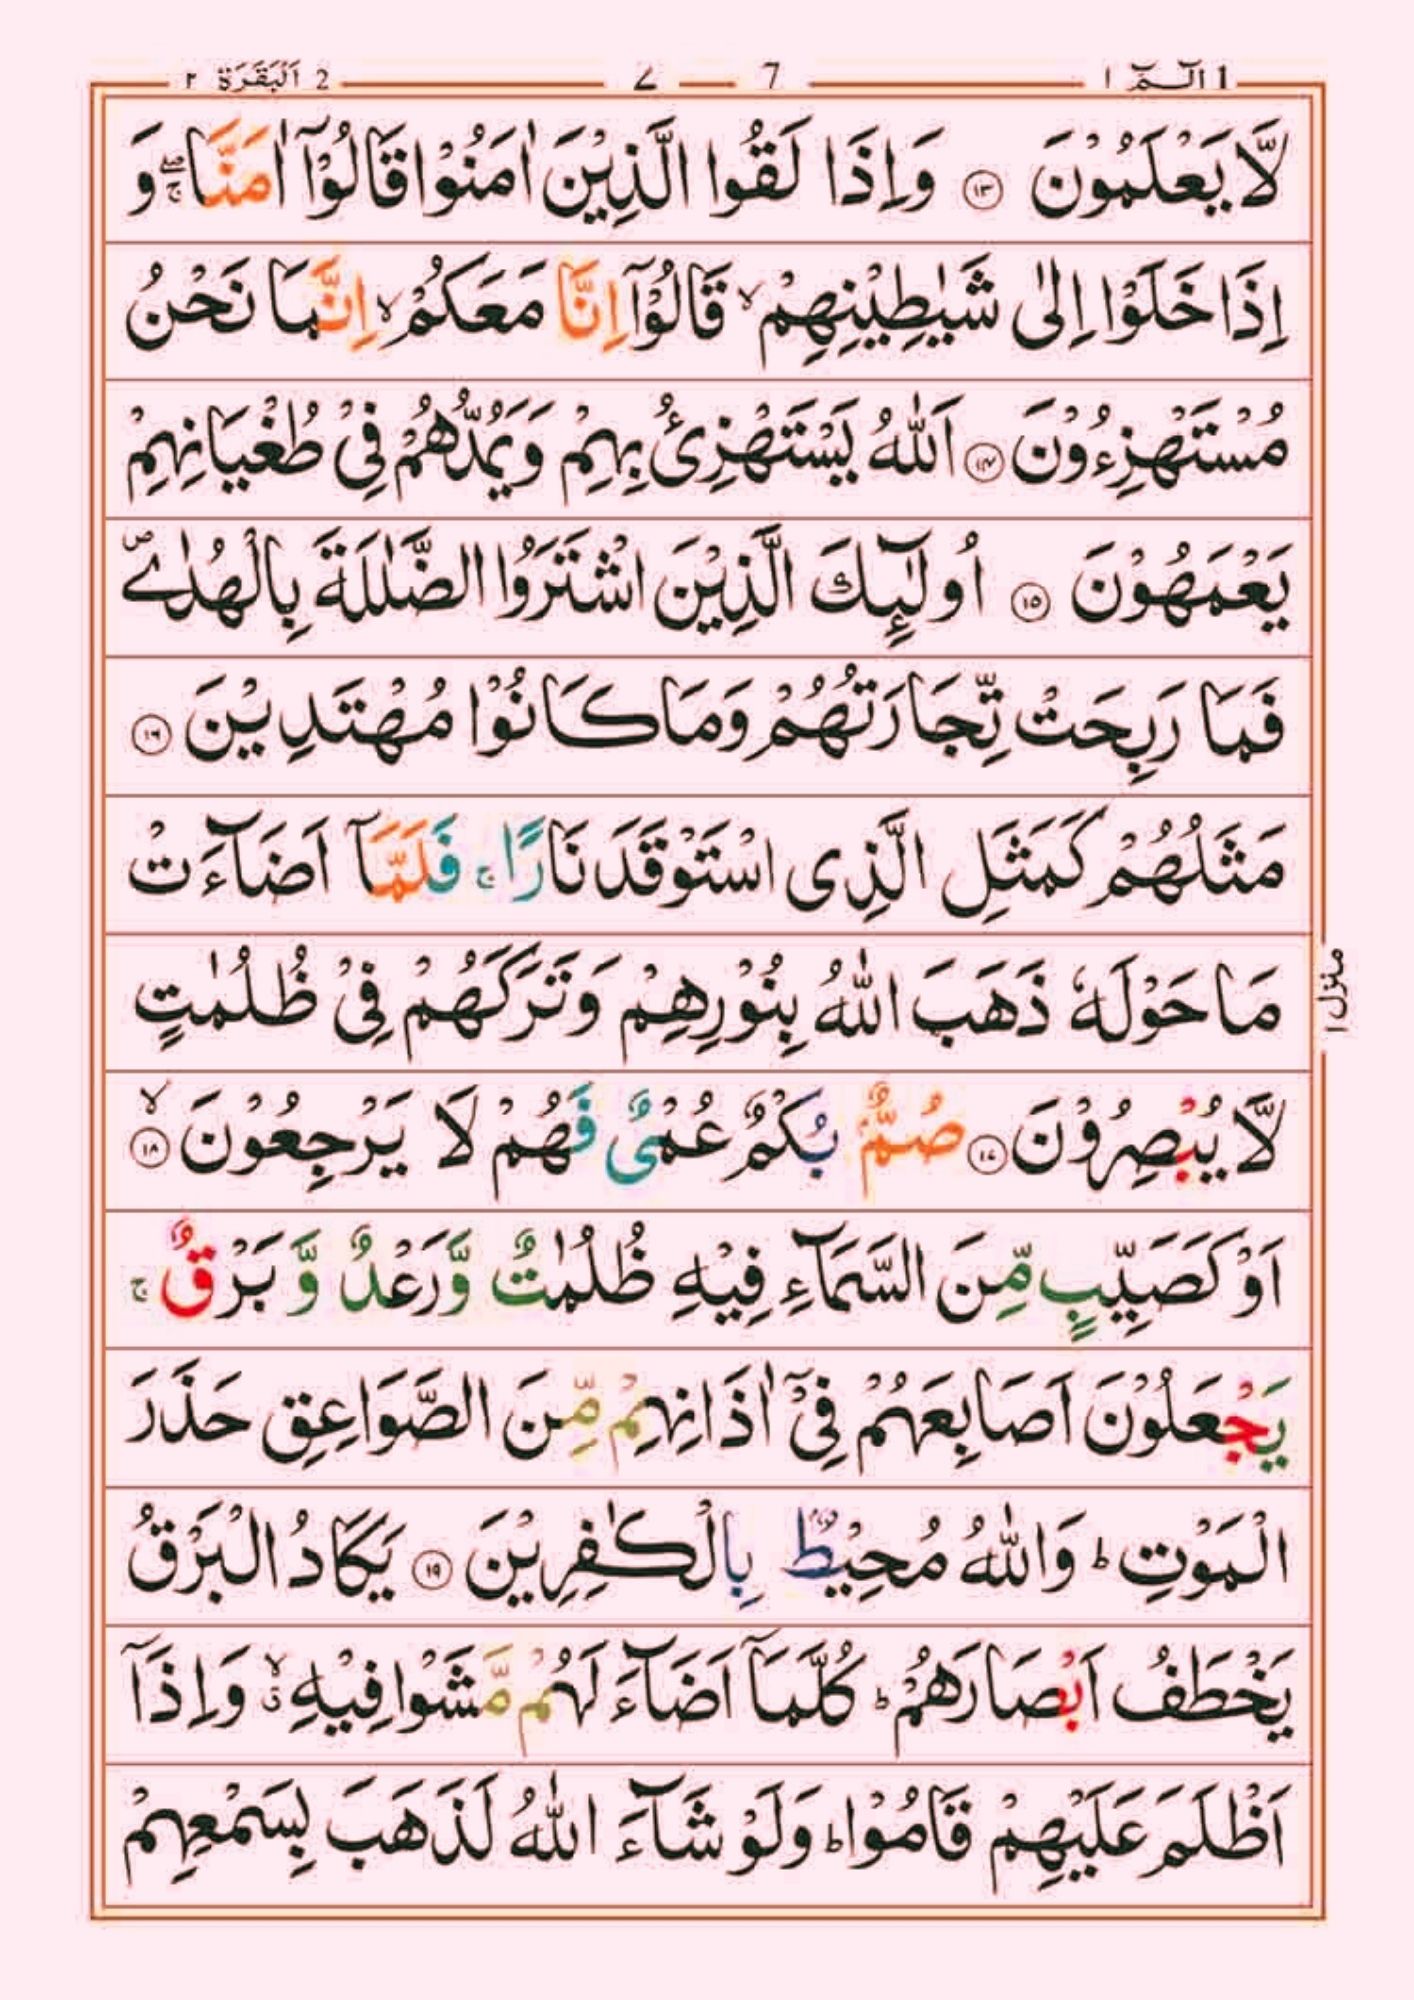 1 الٓـمّٓ ١
7 ٧
2 اَلْبَقَرَة ٢
لَّا يَعْلَمُوْنَ ⑬ وَاِذَا لَقُوا الَّذِيْنَ اٰمَنُوْا قَالُوْٓا اٰمَنَّا ۚۖ وَ
اِذَا خَلَوْا اِلٰى شَيٰطِيْنِهِمْ ۙ قَالُوْٓا اِنَّا مَعَكُمْ ۙ اِنَّمَا نَحْنُ
مُسْتَهْزِءُوْنَ ⑭ اَللّٰهُ يَسْتَهْزِئُ بِهِمْ وَيَمُدُّهُمْ فِيْ طُغْيَانِهِمْ
يَعْمَهُوْنَ ⑮ اُولٰٓئِكَ الَّذِيْنَ اشْتَرَوُا الضَّلٰلَةَ بِالْهُدٰى ۪
فَمَا رَبِحَتْ تِّجَارَتُهُمْ وَمَا كَانُوْا مُهْتَدِيْنَ ⑯
مَثَلُهُمْ كَمَثَلِ الَّذِى اسْتَوْقَدَ نَارًا ۚ فَلَمَّآ اَضَآءَتْ
مَا حَوْلَهٗ ذَهَبَ اللّٰهُ بِنُوْرِهِمْ وَتَرَكَهُمْ فِيْ ظُلُمٰتٍ
لَّا يُبْصِرُوْنَ ⑰ صُمٌّۢ بُكْمٌ عُمْىٌ فَهُمْ لَا يَرْجِعُوْنَ ۙ ⑱
اَوْ كَصَيِّبٍ مِّنَ السَّمَآءِ فِيْهِ ظُلُمٰتٌ وَّرَعْدٌ وَّبَرْقٌ ۚ
يَجْعَلُوْنَ اَصَابِعَهُمْ فِيْٓ اٰذَانِهِمْ مِّنَ الصَّوَاعِقِ حَذَرَ
الْمَوْتِ ؕ وَاللّٰهُ مُحِيْطٌۢ بِالْكٰفِرِيْنَ ⑲ يَكَادُ الْبَرْقُ
يَخْطَفُ اَبْصَارَهُمْ ؕ كُلَّمَآ اَضَآءَ لَهُمْ مَّشَوْا فِيْهِ ۙۗ وَاِذَآ
اَظْلَمَ عَلَيْهِمْ قَامُوْا ؕ وَلَوْ شَآءَ اللّٰهُ لَذَهَبَ بِسَمْعِهِمْ
منزل ١